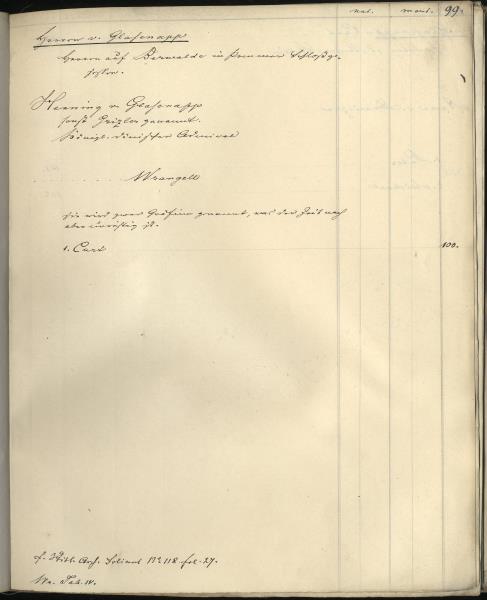 nat. mort. 99.
Herren v. Glasenapp
Herren auf Bärwalde in Pommern Schloßge-
sessen.
Henning v. Glasenapp
sonst genannt.
Königl. dänischer Admiral
Wrangell
Sie wird zwar Gräfin genannt, was der Zeit nach
aber unrichtig ist.
1. Curt 100.
cf. Ritt. Arch. No 118. fol. 27.
Wr. Tab. IV.